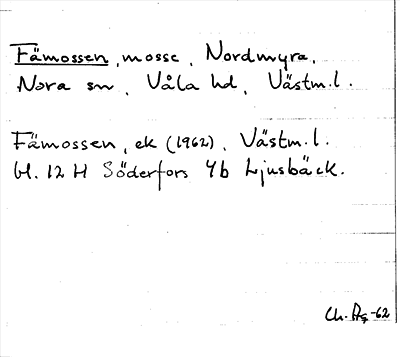 Fämossen, mosse, Nordmyra,
Nora sn, Våla hd, Västm.l.
Fämossen, ek (1962), Västm.l.
bl. 12 H Söderfors 4b Ljusbäck.
Ch. -62